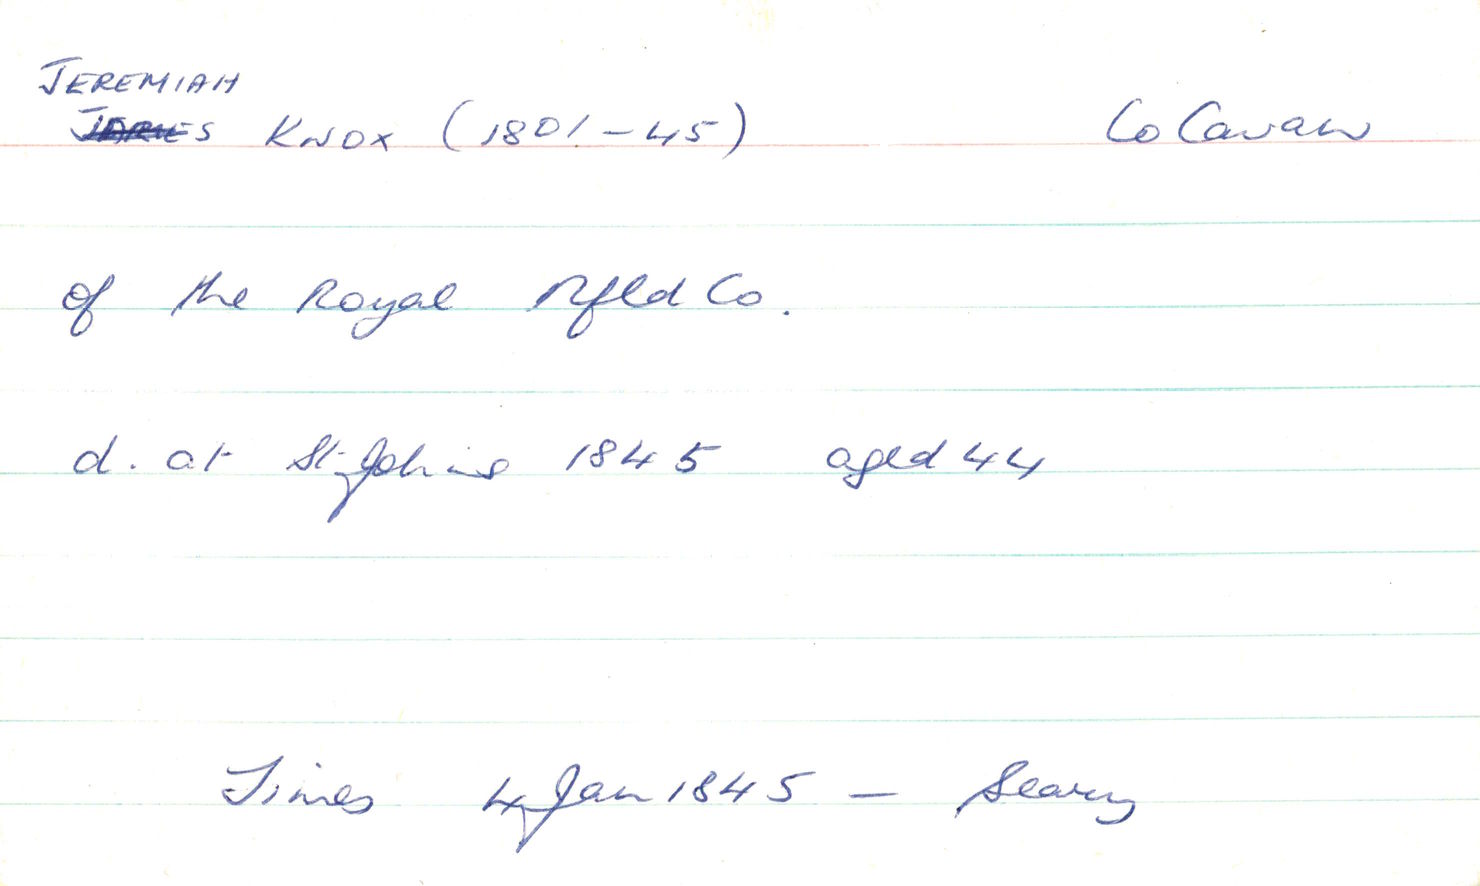 JEREMIAH
JAMES KNOX (1801-45) Co Cavan
of the Royal Nfld Co.
d. at St. John's 1845 aged 44
Times 4 Jan 1845 — Seary